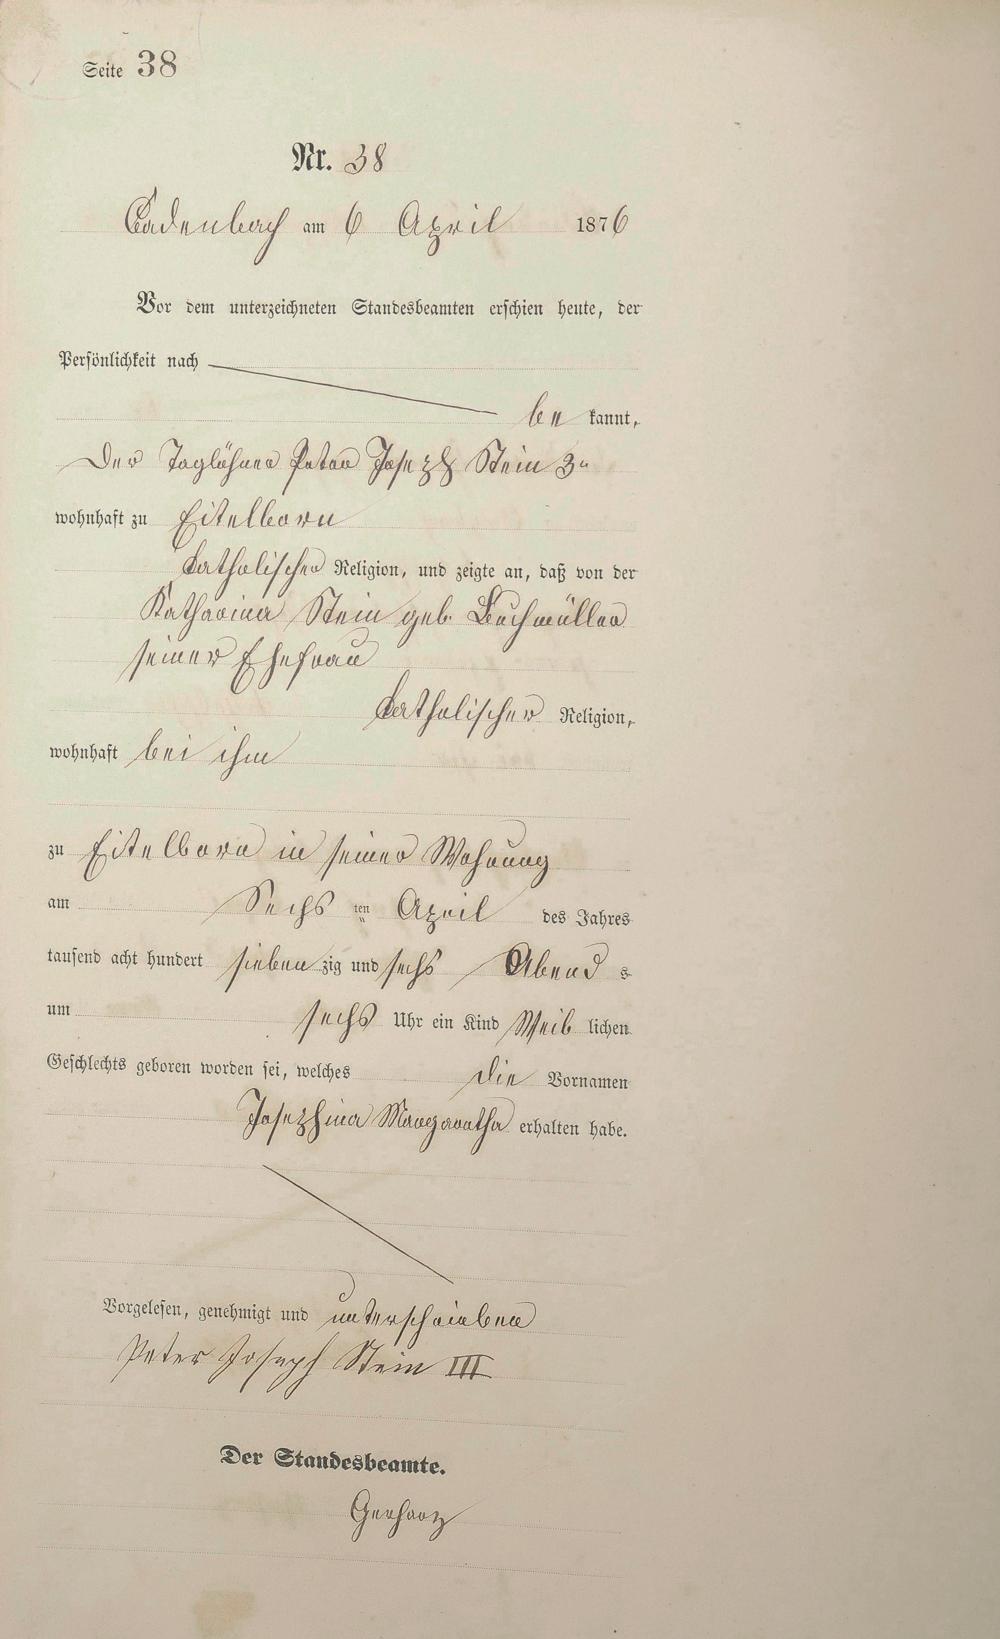 Seite 38
Nr. 38
Cadenbach am 6 April 1876
Vor dem unterzeichneten Standesbeamten erschien heute, der
Persönlichkeit nach
be kannt,
Der Taglöhner Peter Joseph Stein 3n
wohnhaft zu Eitelborn
katholischer Religion, und zeigte an, daß von der
Katharina Stein geb. Buchmüller
seiner Ehefrau
katholischer Religion,
wohnhaft bei ihm
zu Eitelborn in seiner Wohnung
am Sechs ten April des Jahres
tausend acht hundert sieben zig und sechs Abend s
um sechs Uhr ein Kind Weib lichen
Geschlechts geboren worden sei, welches die Vornamen
Josephina Margaretha erhalten habe.
Vorgelesen, genehmigt und unterschrieben
Peter Joseph Stein III
Der Standesbeamte.
Gerharz